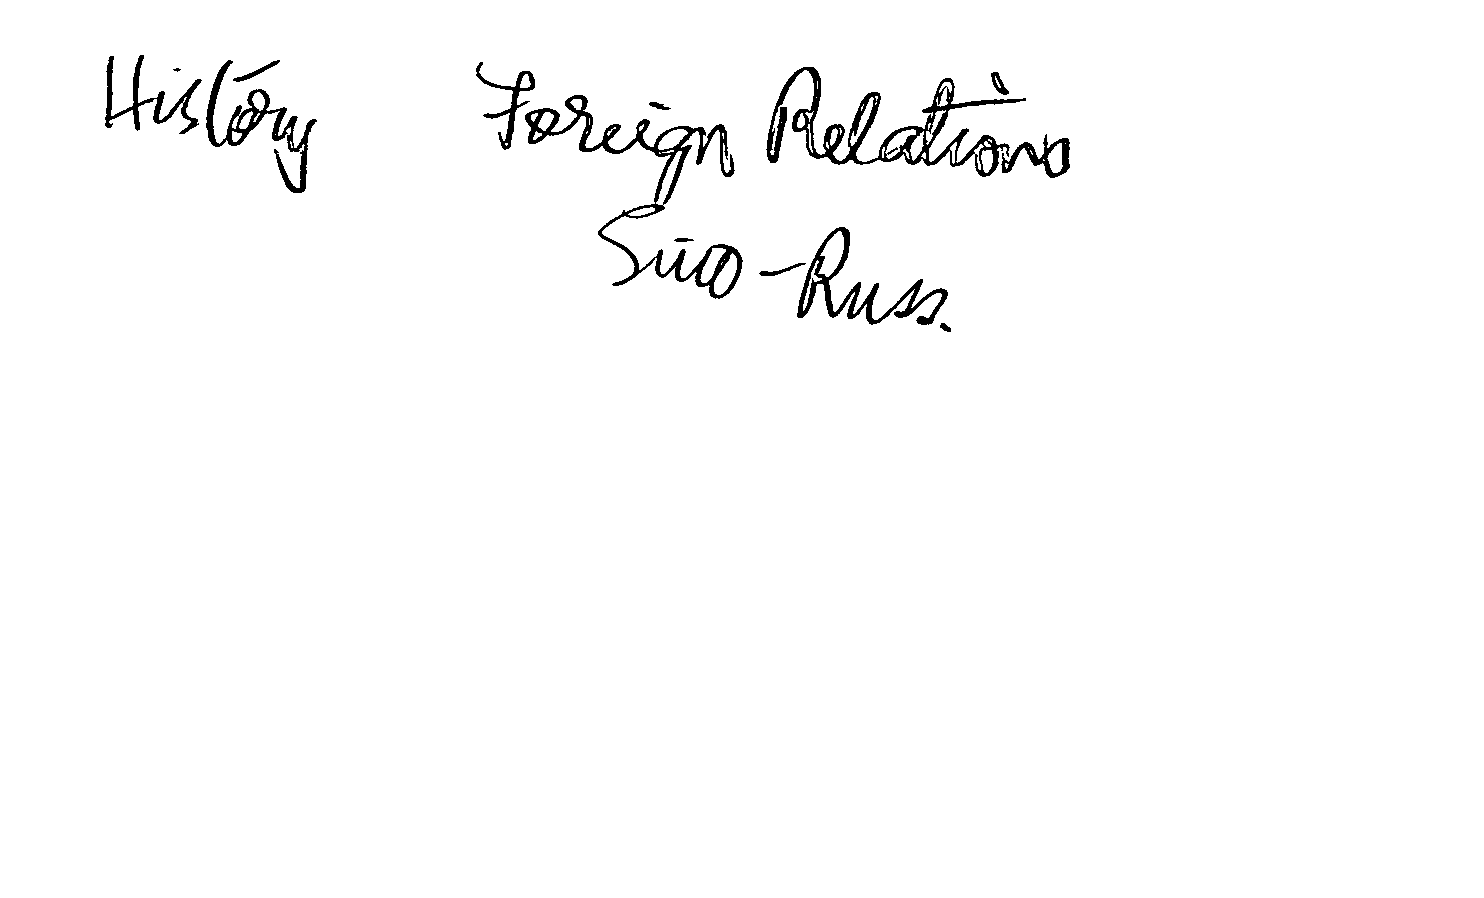 History Foreign Relations
Sino-Russ.